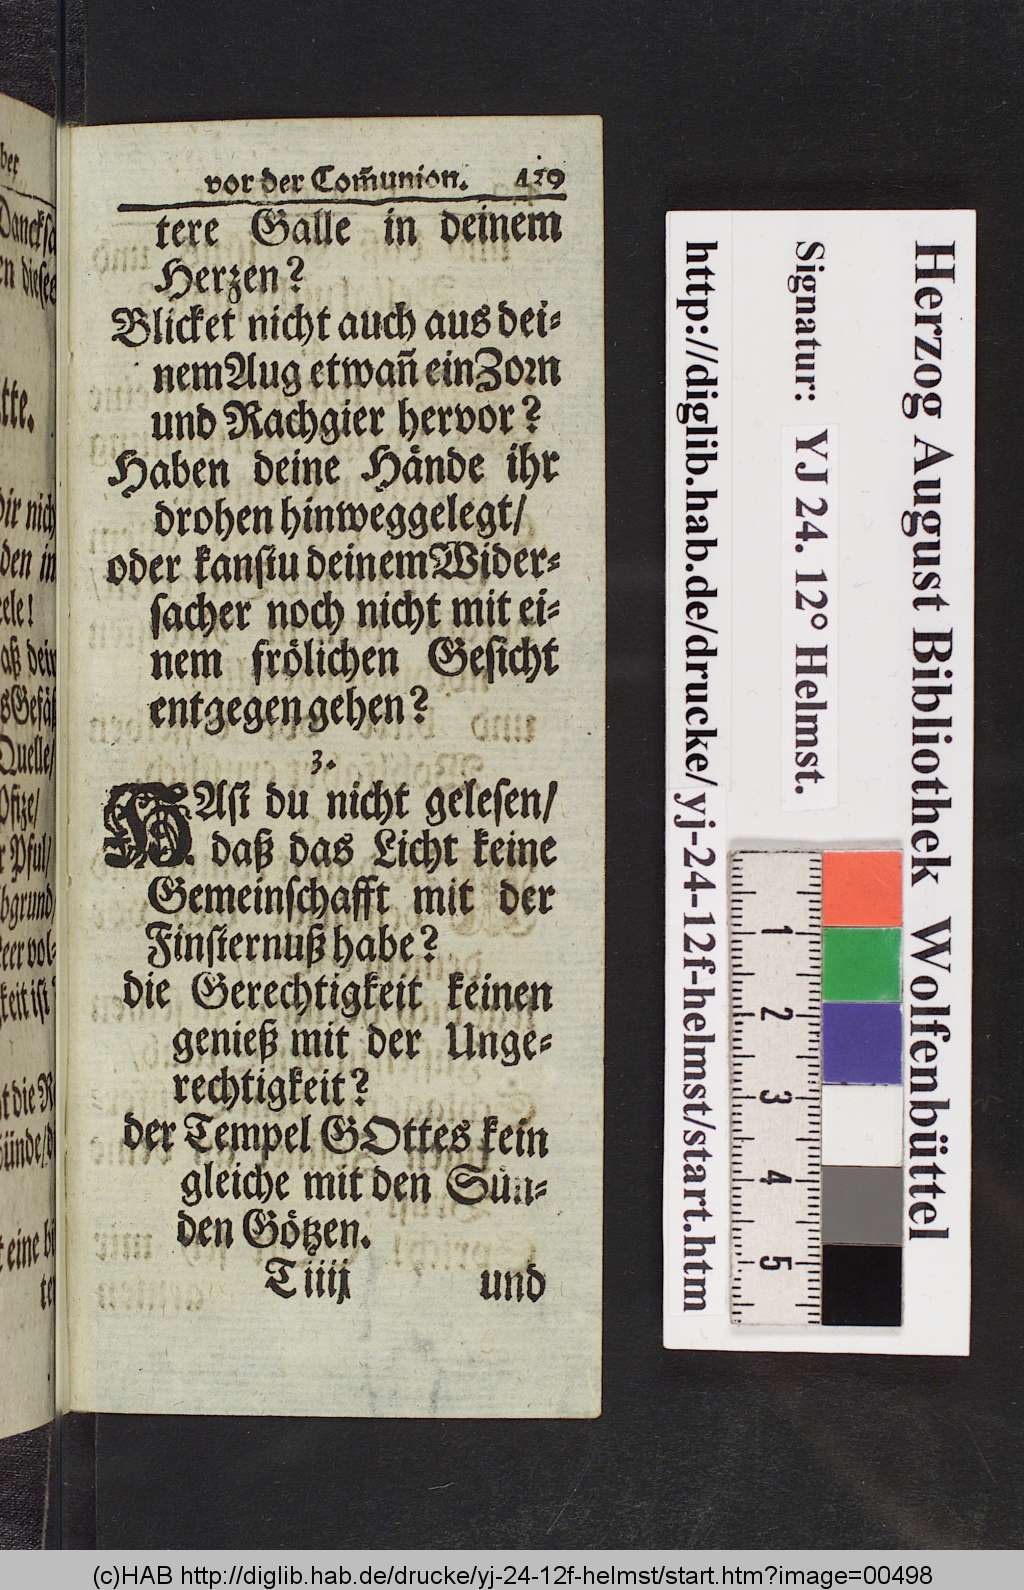 vor der Com̃union. 419
tere Galle in deinem
Herzen?
Blicket nicht auch aus dei⸗
nem Aug etwañ ein Zorn
und Rachgier hervor?
Haben deine Hände ihr
drohen hinweggelegt/
oder kanstu deinem Wider⸗
sacher noch nicht mit ei⸗
nem frölichen Gesicht
entgegen gehen?
3.
HAst du nicht gelesen/
daß das Licht keine
Gemeinschafft mit der
Finsternuß habe?
die Gerechtigkeit keinen
genieß mit der Unge⸗
rechtigkeit?
der Tempel GOttes kein
gleiche mit den Sün⸗
den Götzen.
T iiij und
ber
Dancksa
en dieses
tte.
dir nich
den in
eele!
aß dein
s Gefäß
Quelle/
Pfize/
r Pful/
bgrund/
eer vol⸗
keit ist
t die
ünde/
eine
te
Herzog August Bibliothek Wolfenbüttel
Signatur: YJ 24. 12° Helmst.
http://diglib.hab.de/drucke/yj-24-12f-helmst/start.htm
1
2
3
4
5
(c)HAB http://diglib.hab.de/drucke/yj-24-12f-helmst/start.htm?image=00498